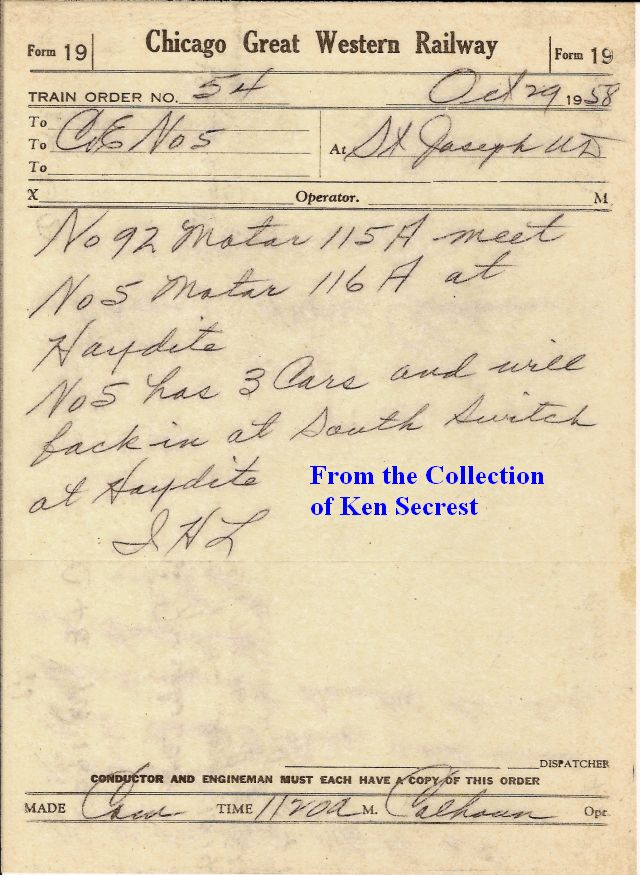 Form 19 Chicago Great Western Railway Form 19
TRAIN ORDER NO. 54 Oct 29 1958
To
To C&E No 5 At St Joseph UD
To
X Operator. M
No 92 Motor 115A meet
No 5 Motor 116A at
Haydite
No 5 has 3 Cars and will
back in at South Switch
at Haydite
From the Collection
of Ken Secrest
J H L
DISPATCHER
CONDUCTOR AND ENGINEMAN MUST EACH HAVE A COPY OF THIS ORDER
MADE Com TIME 1120a M. Calhoun Opr.